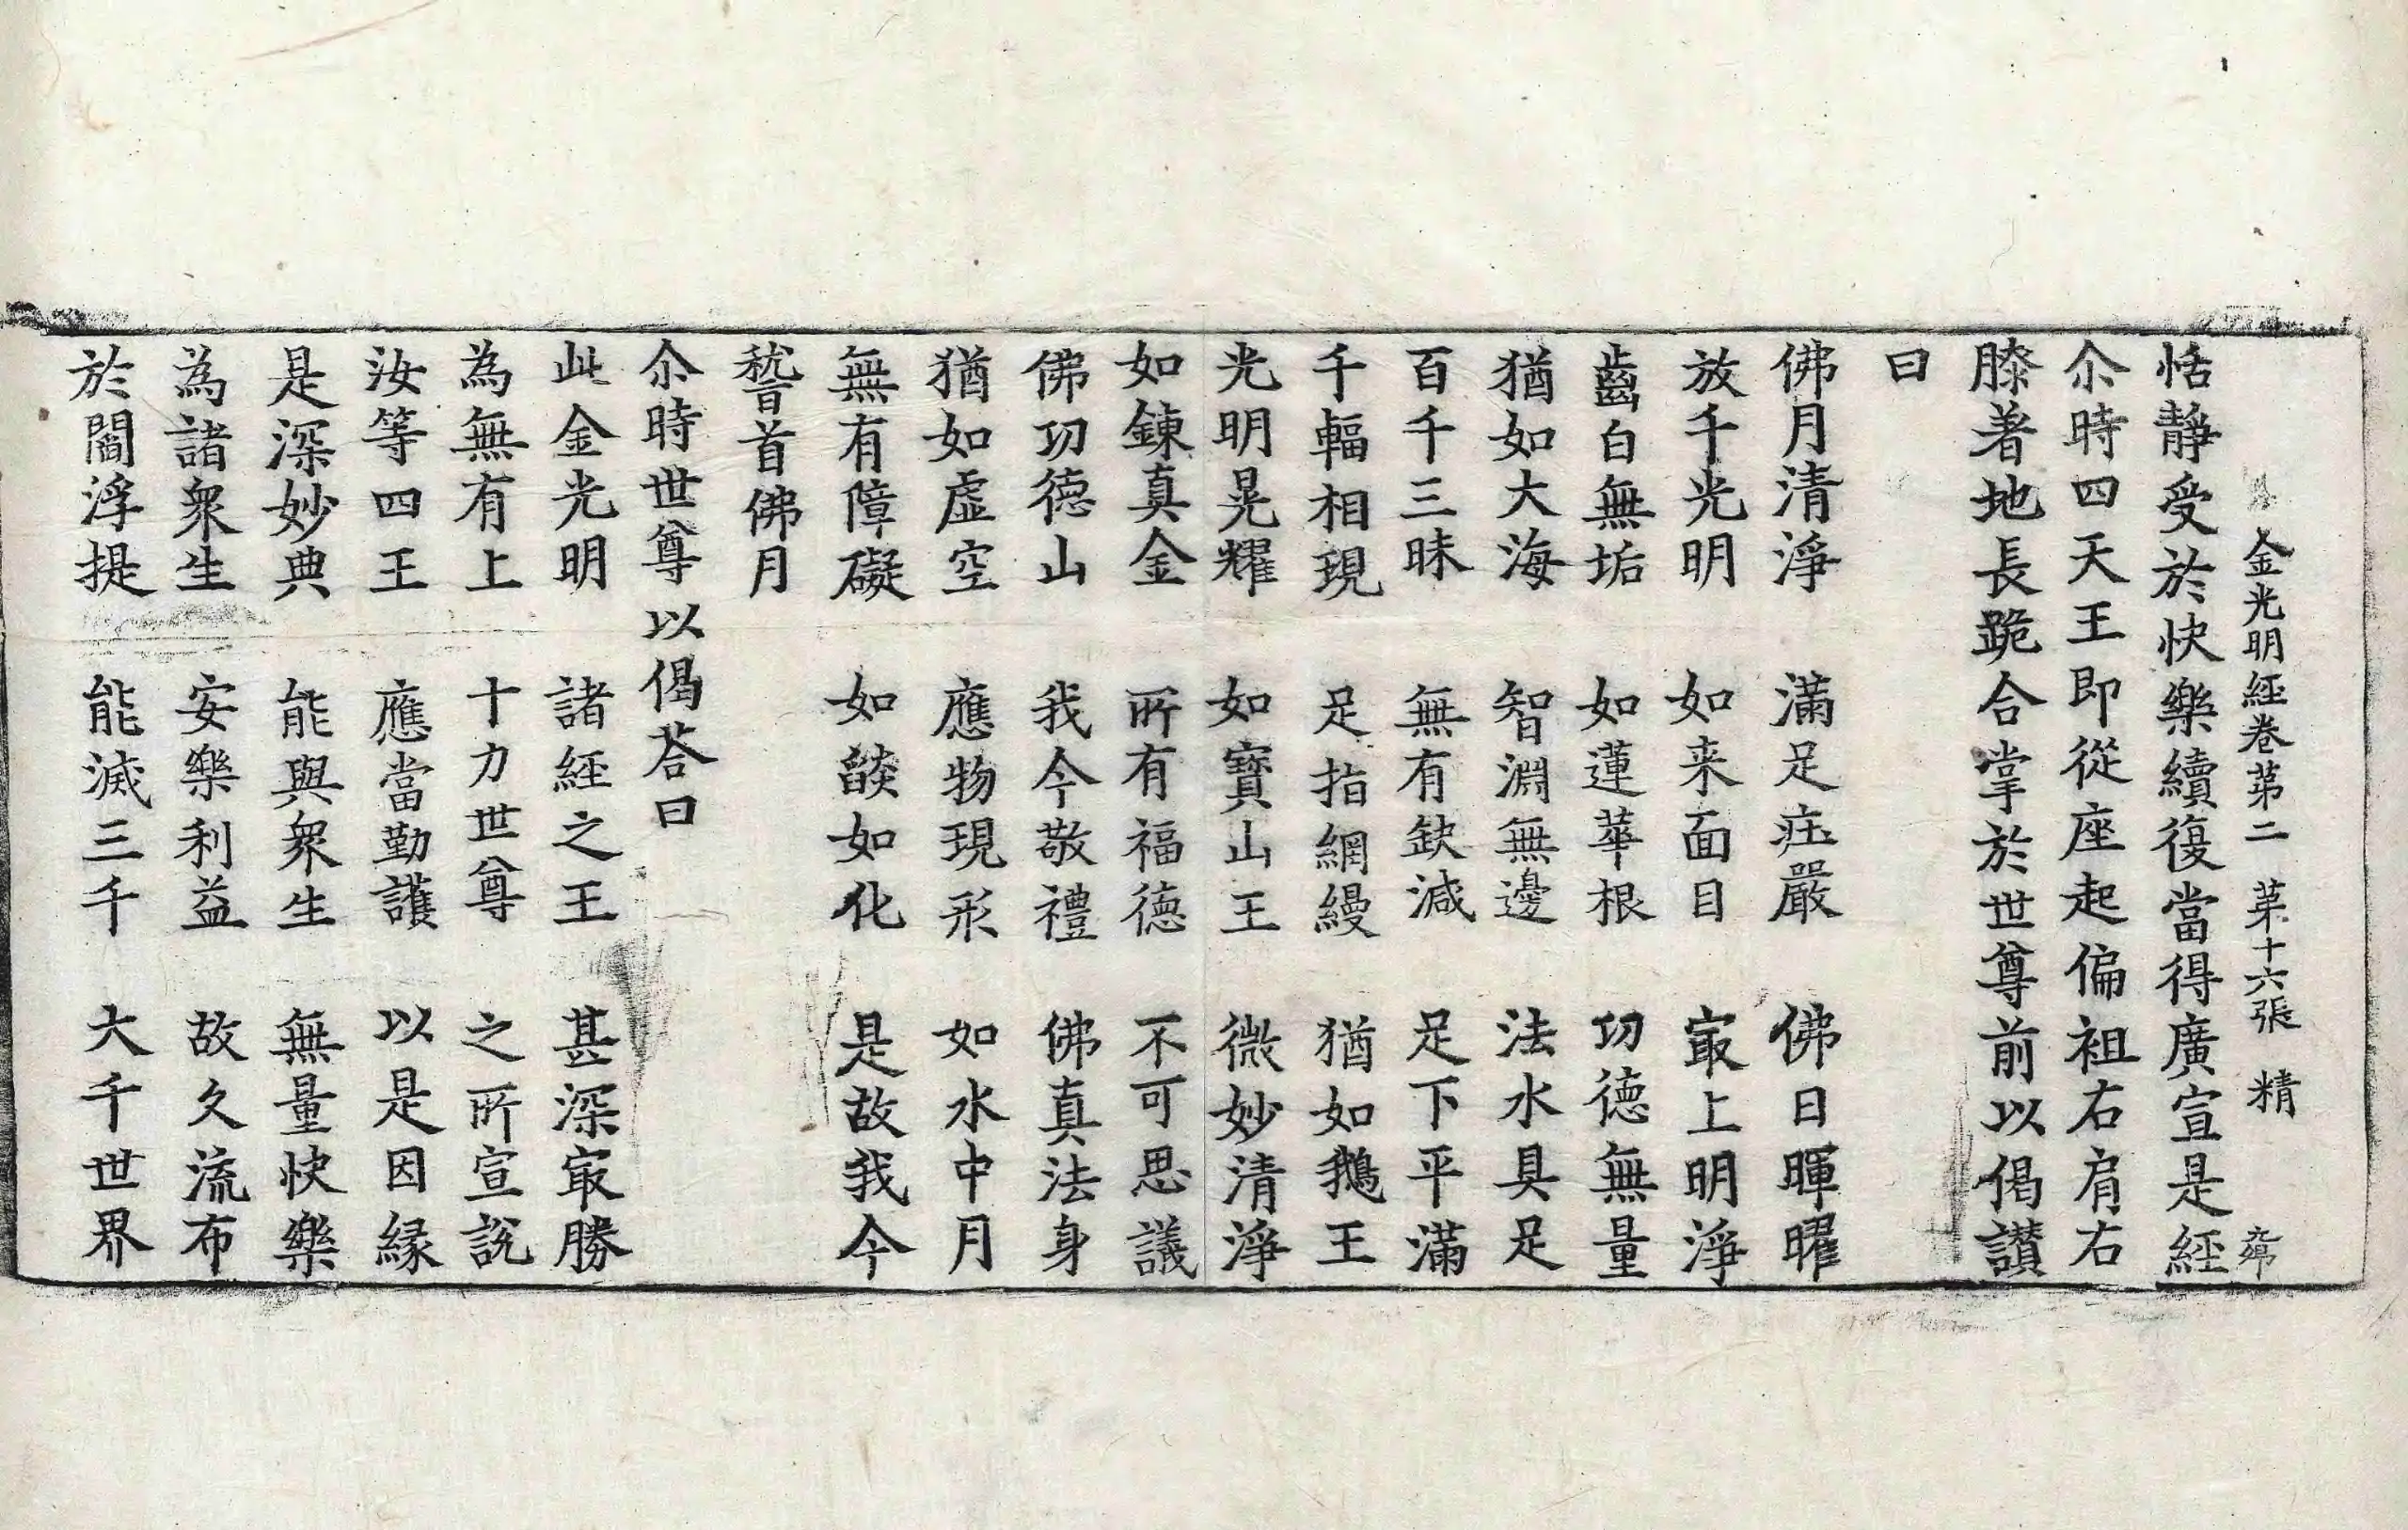 金光明經卷第二　第十六張　精
恬静受於快樂續復當得廣宣是經
尒時四天王即從座起偏袒右肩右
膝著地長跪合掌於世尊前以偈讃
曰
佛月清淨　滿足疘嚴　佛日暉曜
放千光明　如来面目　㝡上明淨
齒白無垢　如蓮華根　功德無量
猶如大海　智淵無邊　法水具足
百千三昧　無有缺減　足下平滿
千輻相現　足指網縵　猶如鵝王
光明晃耀　如寶山王　微妙清淨
如鍊真金　所有福德　不可思議
佛功德山　我今敬禮　佛真法身
猶如虛空　應物現形　如水中月
無有障礙　如燄如化　是故我今
稽首佛月
尒時世尊以偈荅曰
此金光明　諸經之王　甚深㝡勝
為無有上　十力世尊　之所宣說
汝等四王　應當勤護　以是因縁
是深妙典　能與衆生　無量快樂
為諸衆生　安樂利益　故久流布
於閻浮提　能滅三千　大千世界